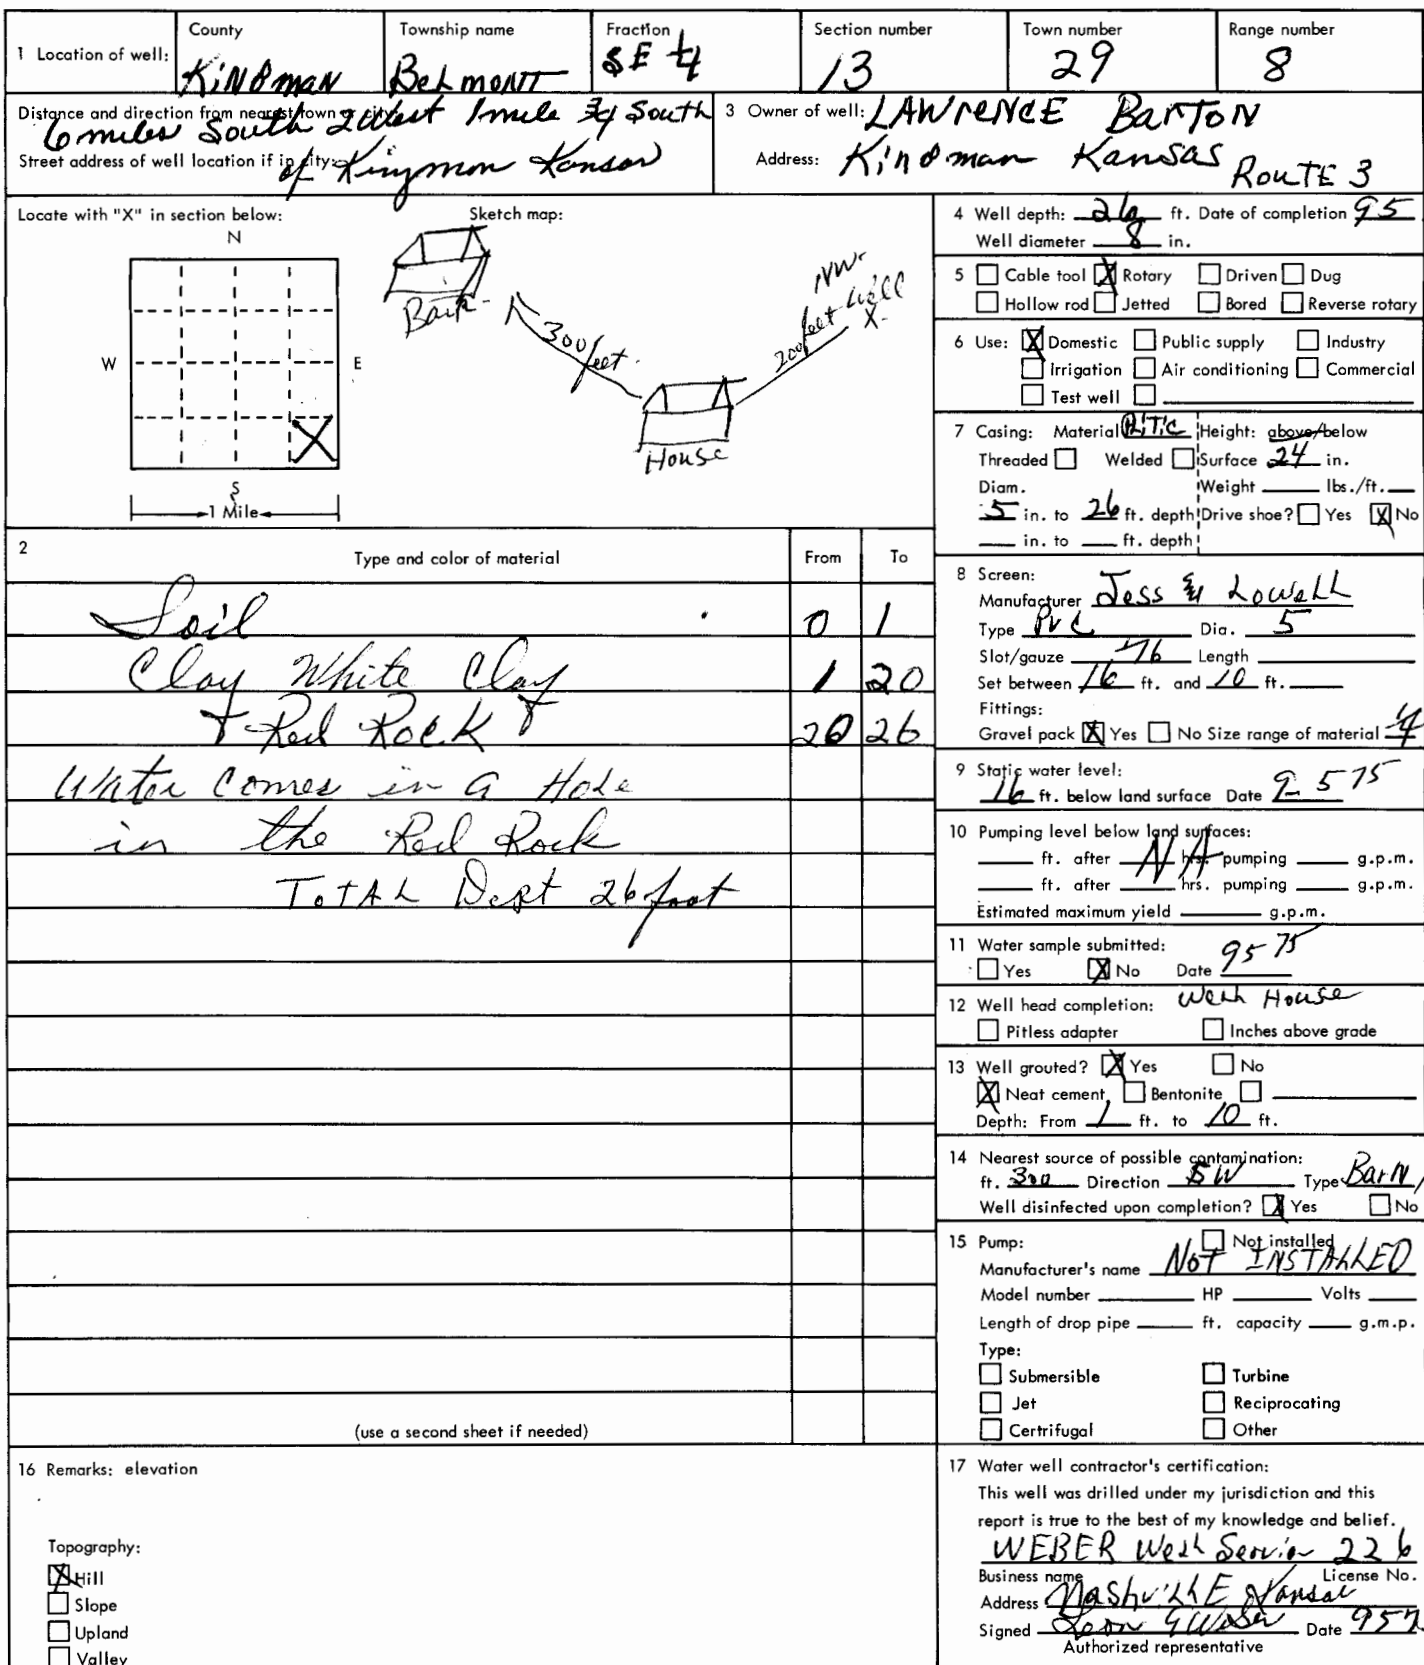 1 Location of well: County KiNgmaN Township name BeLmonTT Fraction SE 1/4 Section number 13 Town number 29 Range number 8
Distance and direction from nearest town or city: 6 miles South 2 West 1 mile 3/4 South
Street address of well location if in city: of Kingman Kansas
3 Owner of well: LAWrENCE BarTON
Address: KiNgman Kansas RouTE 3
Locate with "X" in section below:
N
W
E
S
1 Mile
Sketch map:
Barn
300 feet
House
200 feet well
NW
X
2 Type and color of material From To
Soil 0 1
Clay White Clay 1 20
Red RocK 20 26
Water Comes in a HoLe
in the Red Rock
ToTAL Dept 26 foot
(use a second sheet if needed)
4 Well depth: 26 ft. Date of completion 95
Well diameter 8 in.
5 Cable tool X Rotary Driven Dug
Hollow rod Jetted Bored Reverse rotary
6 Use: X Domestic Public supply Industry
Irrigation Air conditioning Commercial
Test well
7 Casing: Material Height: above/below
Threaded Welded Surface 24 in.
Diam. Weight lbs./ft.
5 in. to 26 ft. depth Drive shoe? Yes X No
in. to ft. depth
8 Screen:
Manufacturer Jess & LoweLL
Type PVC Dia. 5
Slot/gauze Length
Set between 16 ft. and 10 ft.
Fittings:
Gravel pack X Yes No Size range of material 1/4
9 Static water level:
16 ft. below land surface Date 9 5 75
10 Pumping level below land surfaces:
ft. after NA hrs. pumping g.p.m.
ft. after hrs. pumping g.p.m.
Estimated maximum yield g.p.m.
11 Water sample submitted:
Yes X No Date 95 75
12 Well head completion: WeLL House
Pitless adapter Inches above grade
13 Well grouted? X Yes No
X Neat cement Bentonite
Depth: From 1 ft. to 10 ft.
14 Nearest source of possible contamination:
ft. 300 Direction SW Type BarN
Well disinfected upon completion? X Yes No
15 Pump: Not installed
Manufacturer's name NoT INSTALLED
Model number HP Volts
Length of drop pipe ft. capacity g.m.p.
Type:
Submersible Turbine
Jet Reciprocating
Certrifugal Other
16 Remarks: elevation
Topography:
X Hill
Slope
Upland
Valley
17 Water well contractor's certification:
This well was drilled under my jurisdiction and this
report is true to the best of my knowledge and belief.
WEBER WeLL Service 226
Business name License No.
Address NashviLLE Kansas
Signed Leon G Weber Date 957
Authorized representative